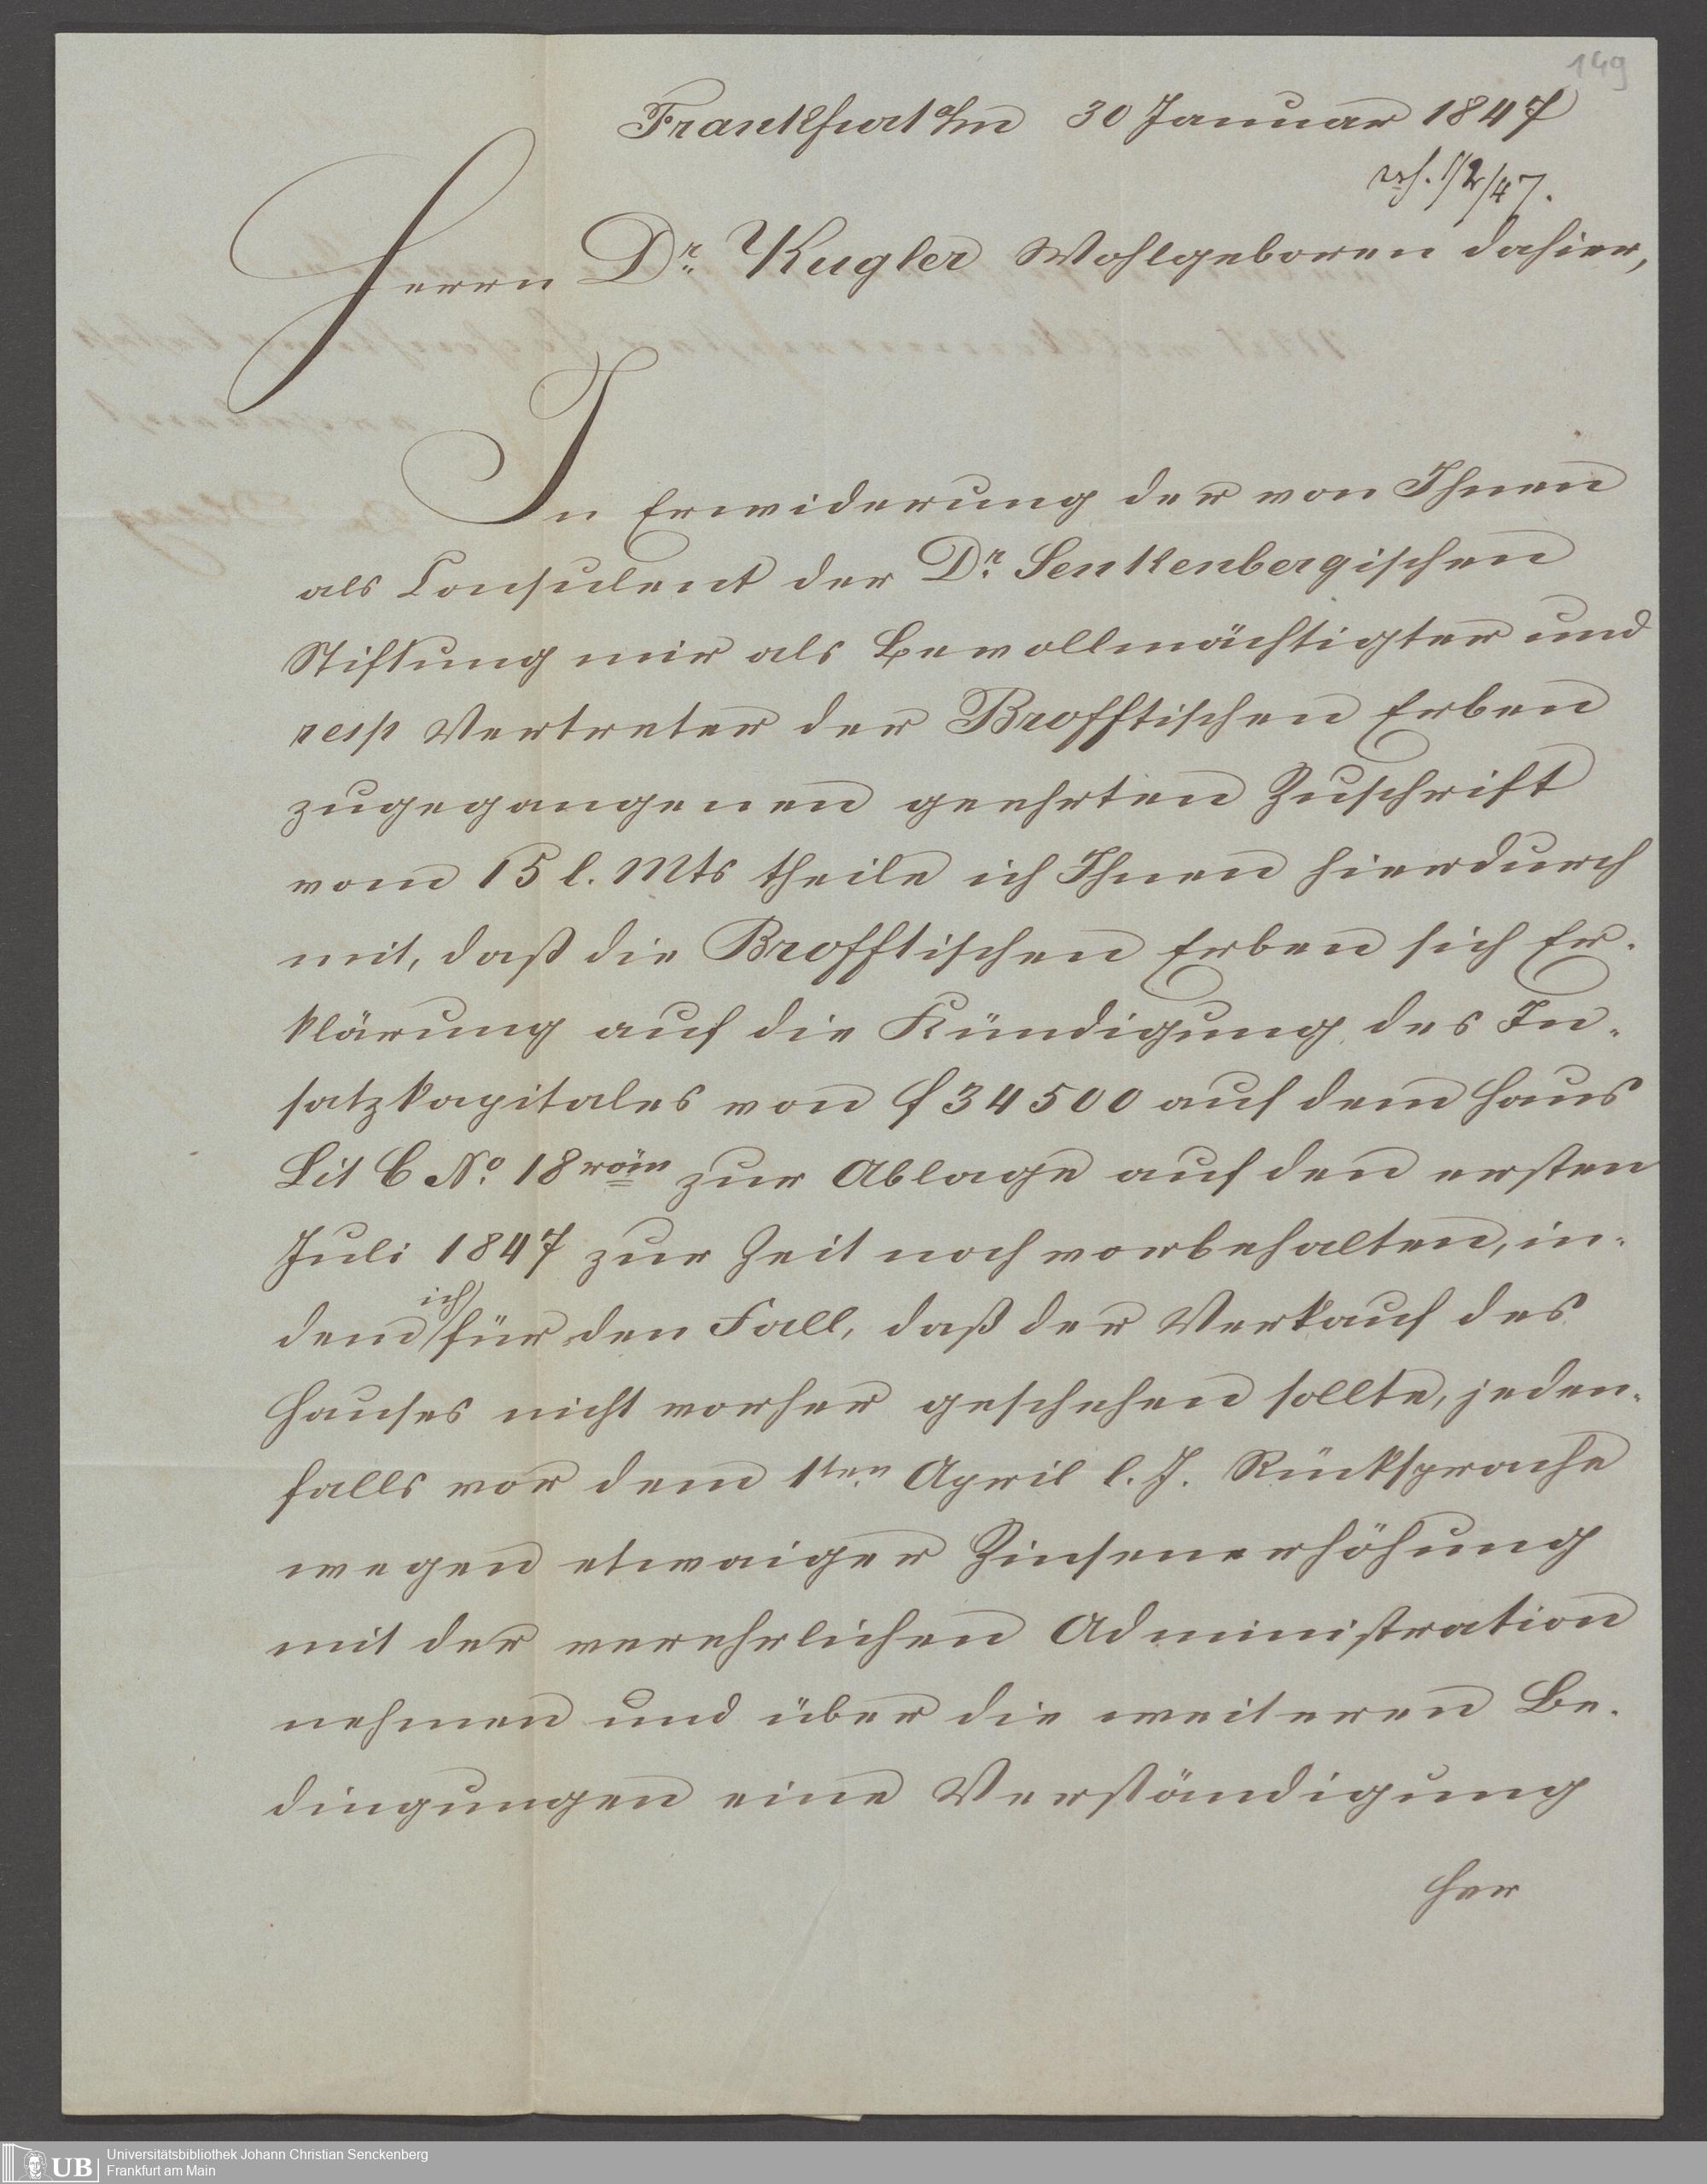 149
Frankfurt a/m 30 Januar 1847
erh. 1/2/47.
Herrn Dr. Kugler Wohlgeboren dahier,
In Erwiderung der von Ihnen
als Consulent der Dr. Senkenbergischen
Stiftung mir als Bevollmächtigter und
resp Vertreter der Brofftischen Erben
zugegangenen geehrten Zuschrift
vom 15 l. Mts theile ich Ihnen hierdurch
mit, daß die Brofftischen Erben sich Er-
klärung auf die Kündigung des In-
satzkapitales von f 34500 auf dem Haus
Lit C No. 18 zur Ablage auf den ersten
Juli 1847 zur Zeit noch vorbehalten, in-
dem ich für den Fall, daß der Verkauf des
Hauses nicht vorher geschehen sollte, jeden-
falls vor dem 1ten April l. J. Rücksprache
wegen etwaiger Zinsenerhöhung
mit der verehrlichen Administration
nehmen und über die weiteren Be-
dingungen eine Verständigung
her
UB
Universitätsbibliothek Johann Christian Senckenberg
Frankfurt am Main